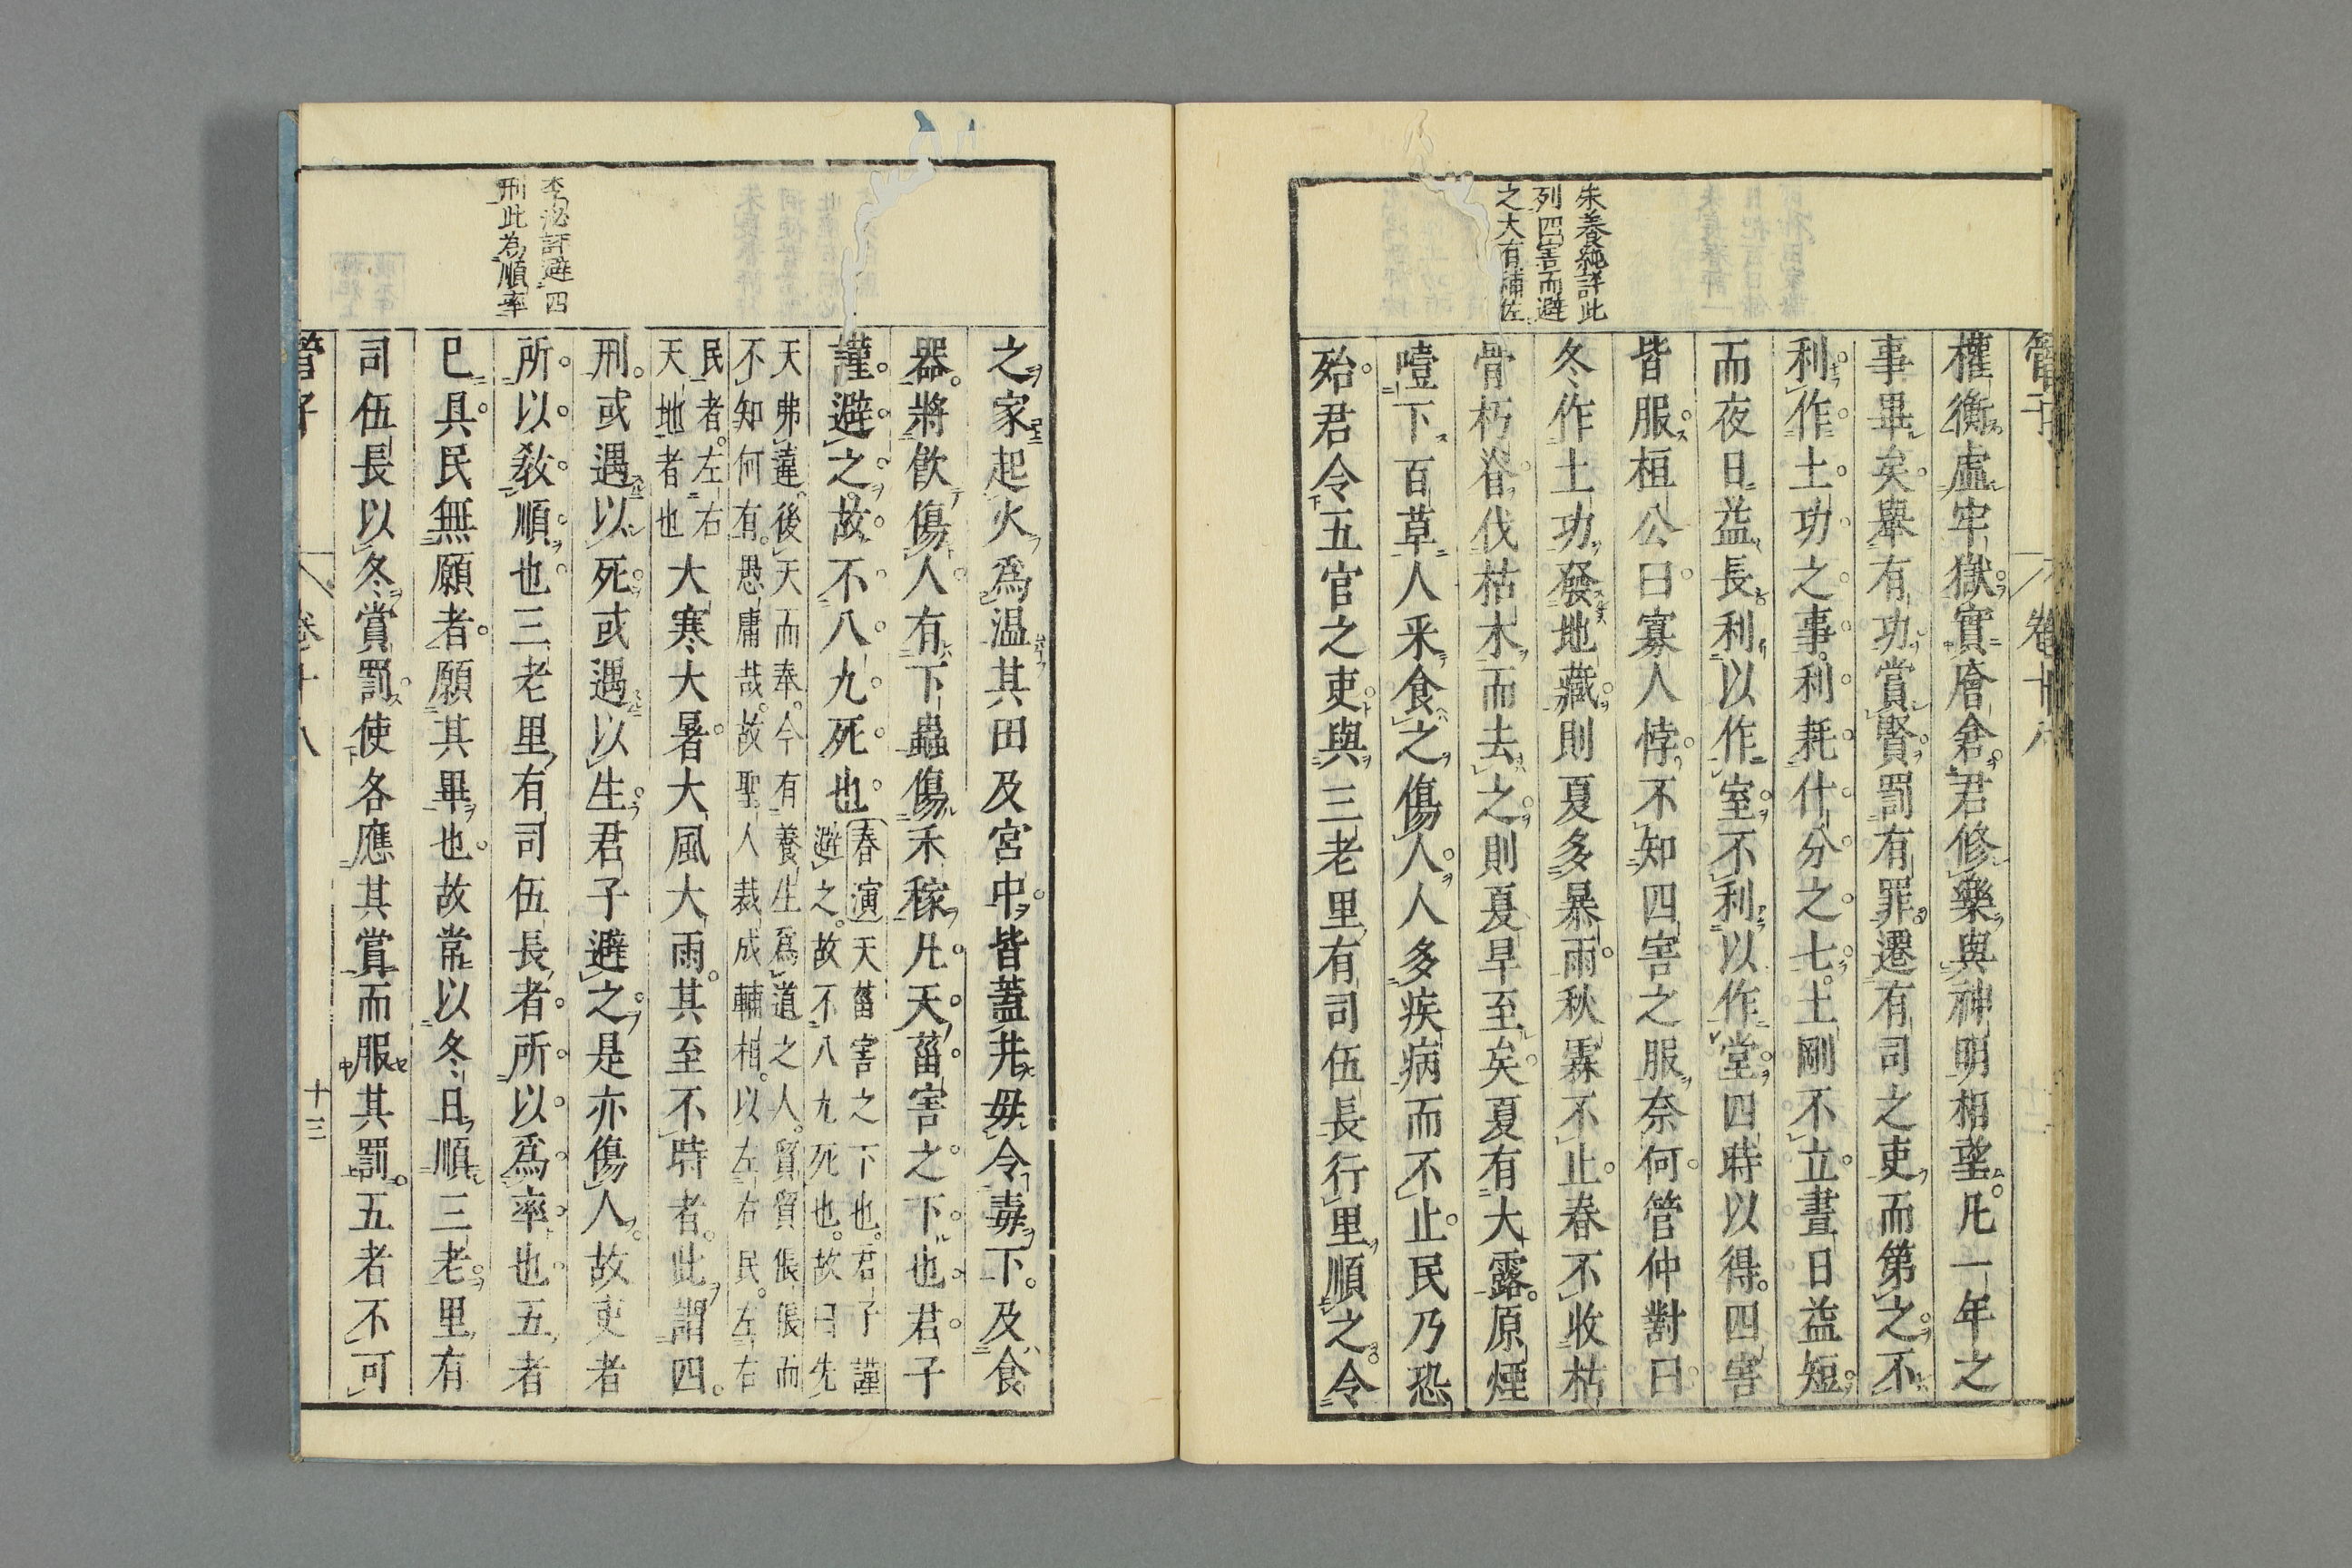 管子
卷十八
朱養純評此
列四害而避
之大有補佐
權衡虛牢獄實廥倉君修樂與神明相望凡一年之
事畢矣舉有功賞賢罰有罪遷有司之吏而第之不
利作土功之事利耗什分之七土剛不立晝日益短
而夜日益長利以作室不利以作堂四時以得四害
皆服桓公曰寡人悖不知四害之服奈何管仲對曰
冬作土功發地藏則夏多暴雨秋霖不止春不收枯
骨朽脊伐枯木而去之則夏旱至矣夏有大露原煙
噎下百草人采食之傷人人多疾病而不止民乃恐
殆君令五官之吏與三老里有司伍長行里順之令
李泌評避四
刑此為順率
之家起火爲温其田及宮中皆蓋井毋令毒下及食
器將飮傷人有下蟲傷禾稼凡天菑害之下也君子
謹避之故不八九死也
春演天菑害之下也君子謹
避之故不八九死也故曰先
天弗違後天而奉今有養生爲道之人貿貿倀倀而
不知何有愚庸哉故聖人裁成輔相以左右民左右
民者左右
天地者也
大寒大暑大風大雨其至不時者此謂四
刑或遇以死或遇以生君子避之是亦傷人故吏者
所以敎順也三老里有司伍長者所以爲率也五者
已具民無願者願其畢也故常以冬日順三老里有
司伍長以冬賞罰使各應其賞而服其罰五者不可
管子
卷十八
十三